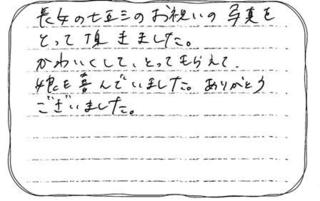 長女の七五三のお祝いの写真を
とって頂きました。
かわいくして、とってもらえて
娘も喜んでいました。ありがとう
ございました。